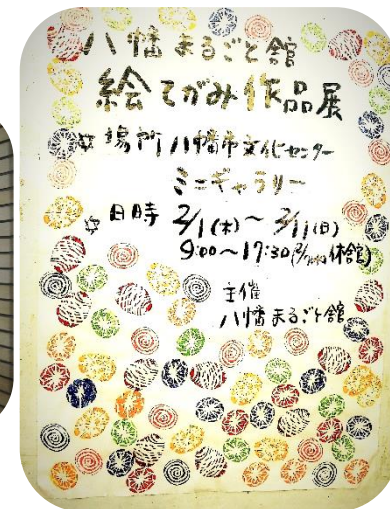 八幡まるごと館
絵てがみ作品展
場所 八幡市文化センター
ミニギャラリー
日時 2/1(木)～2/11(日)
9:00～17:30(休館)
主催
八幡まるごと館